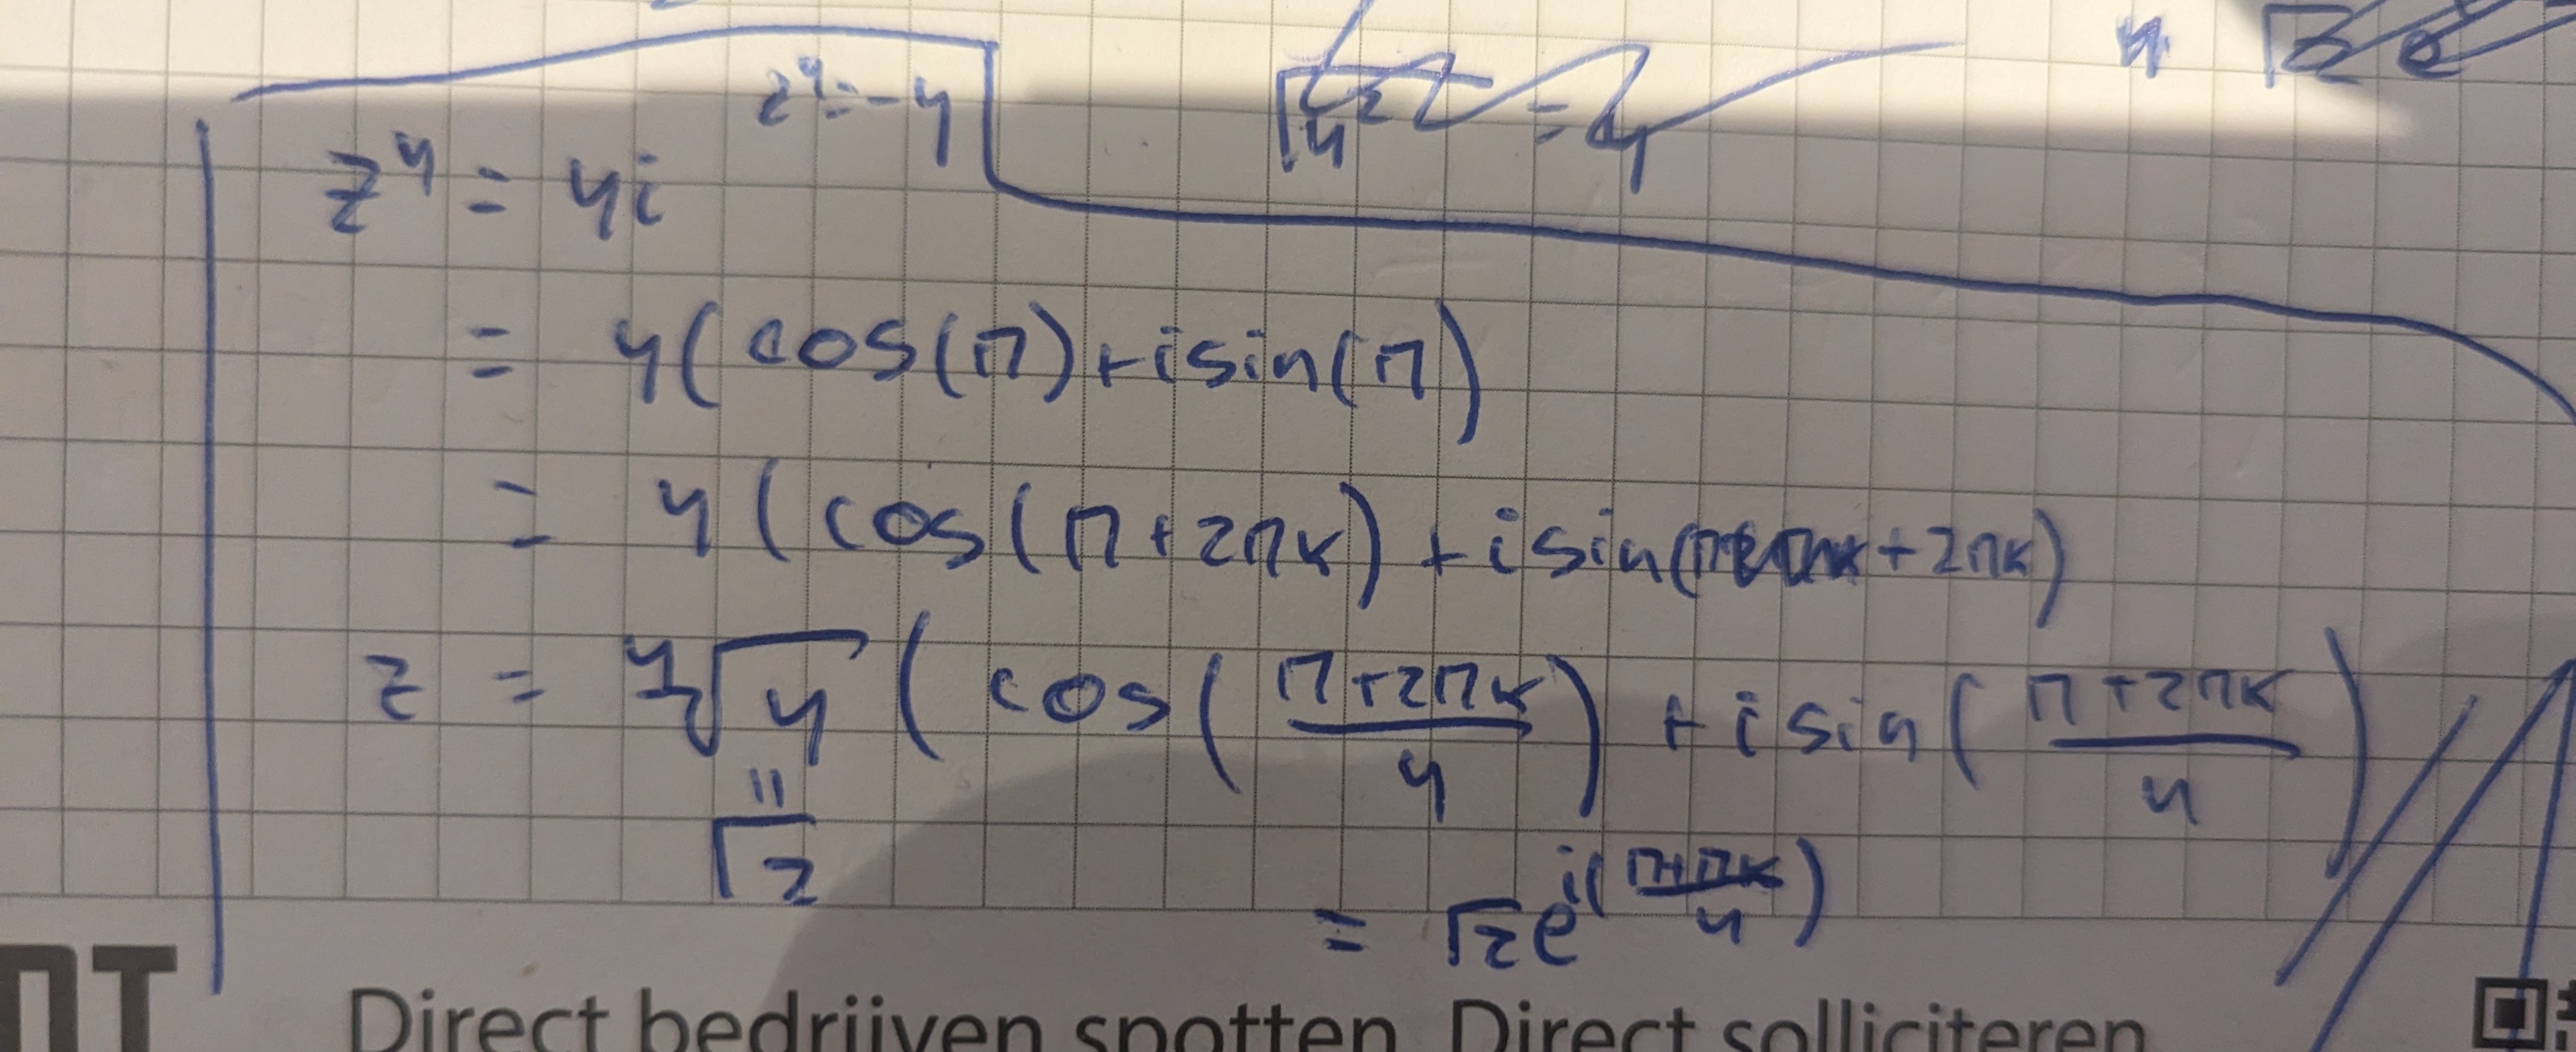 z⁴ = -4
z⁴ = 4i
= 4(cos(π)+isin(π)
= 4(cos(π+2πk) + isin(π+2πk)
z = ⁴√4 (cos((π+2πk)/4) + isin((π+2πk)/4)
=
√2
= √2e^i((π+πk)/4)
NT
Direct bedrijven spotten Direct solliciteren